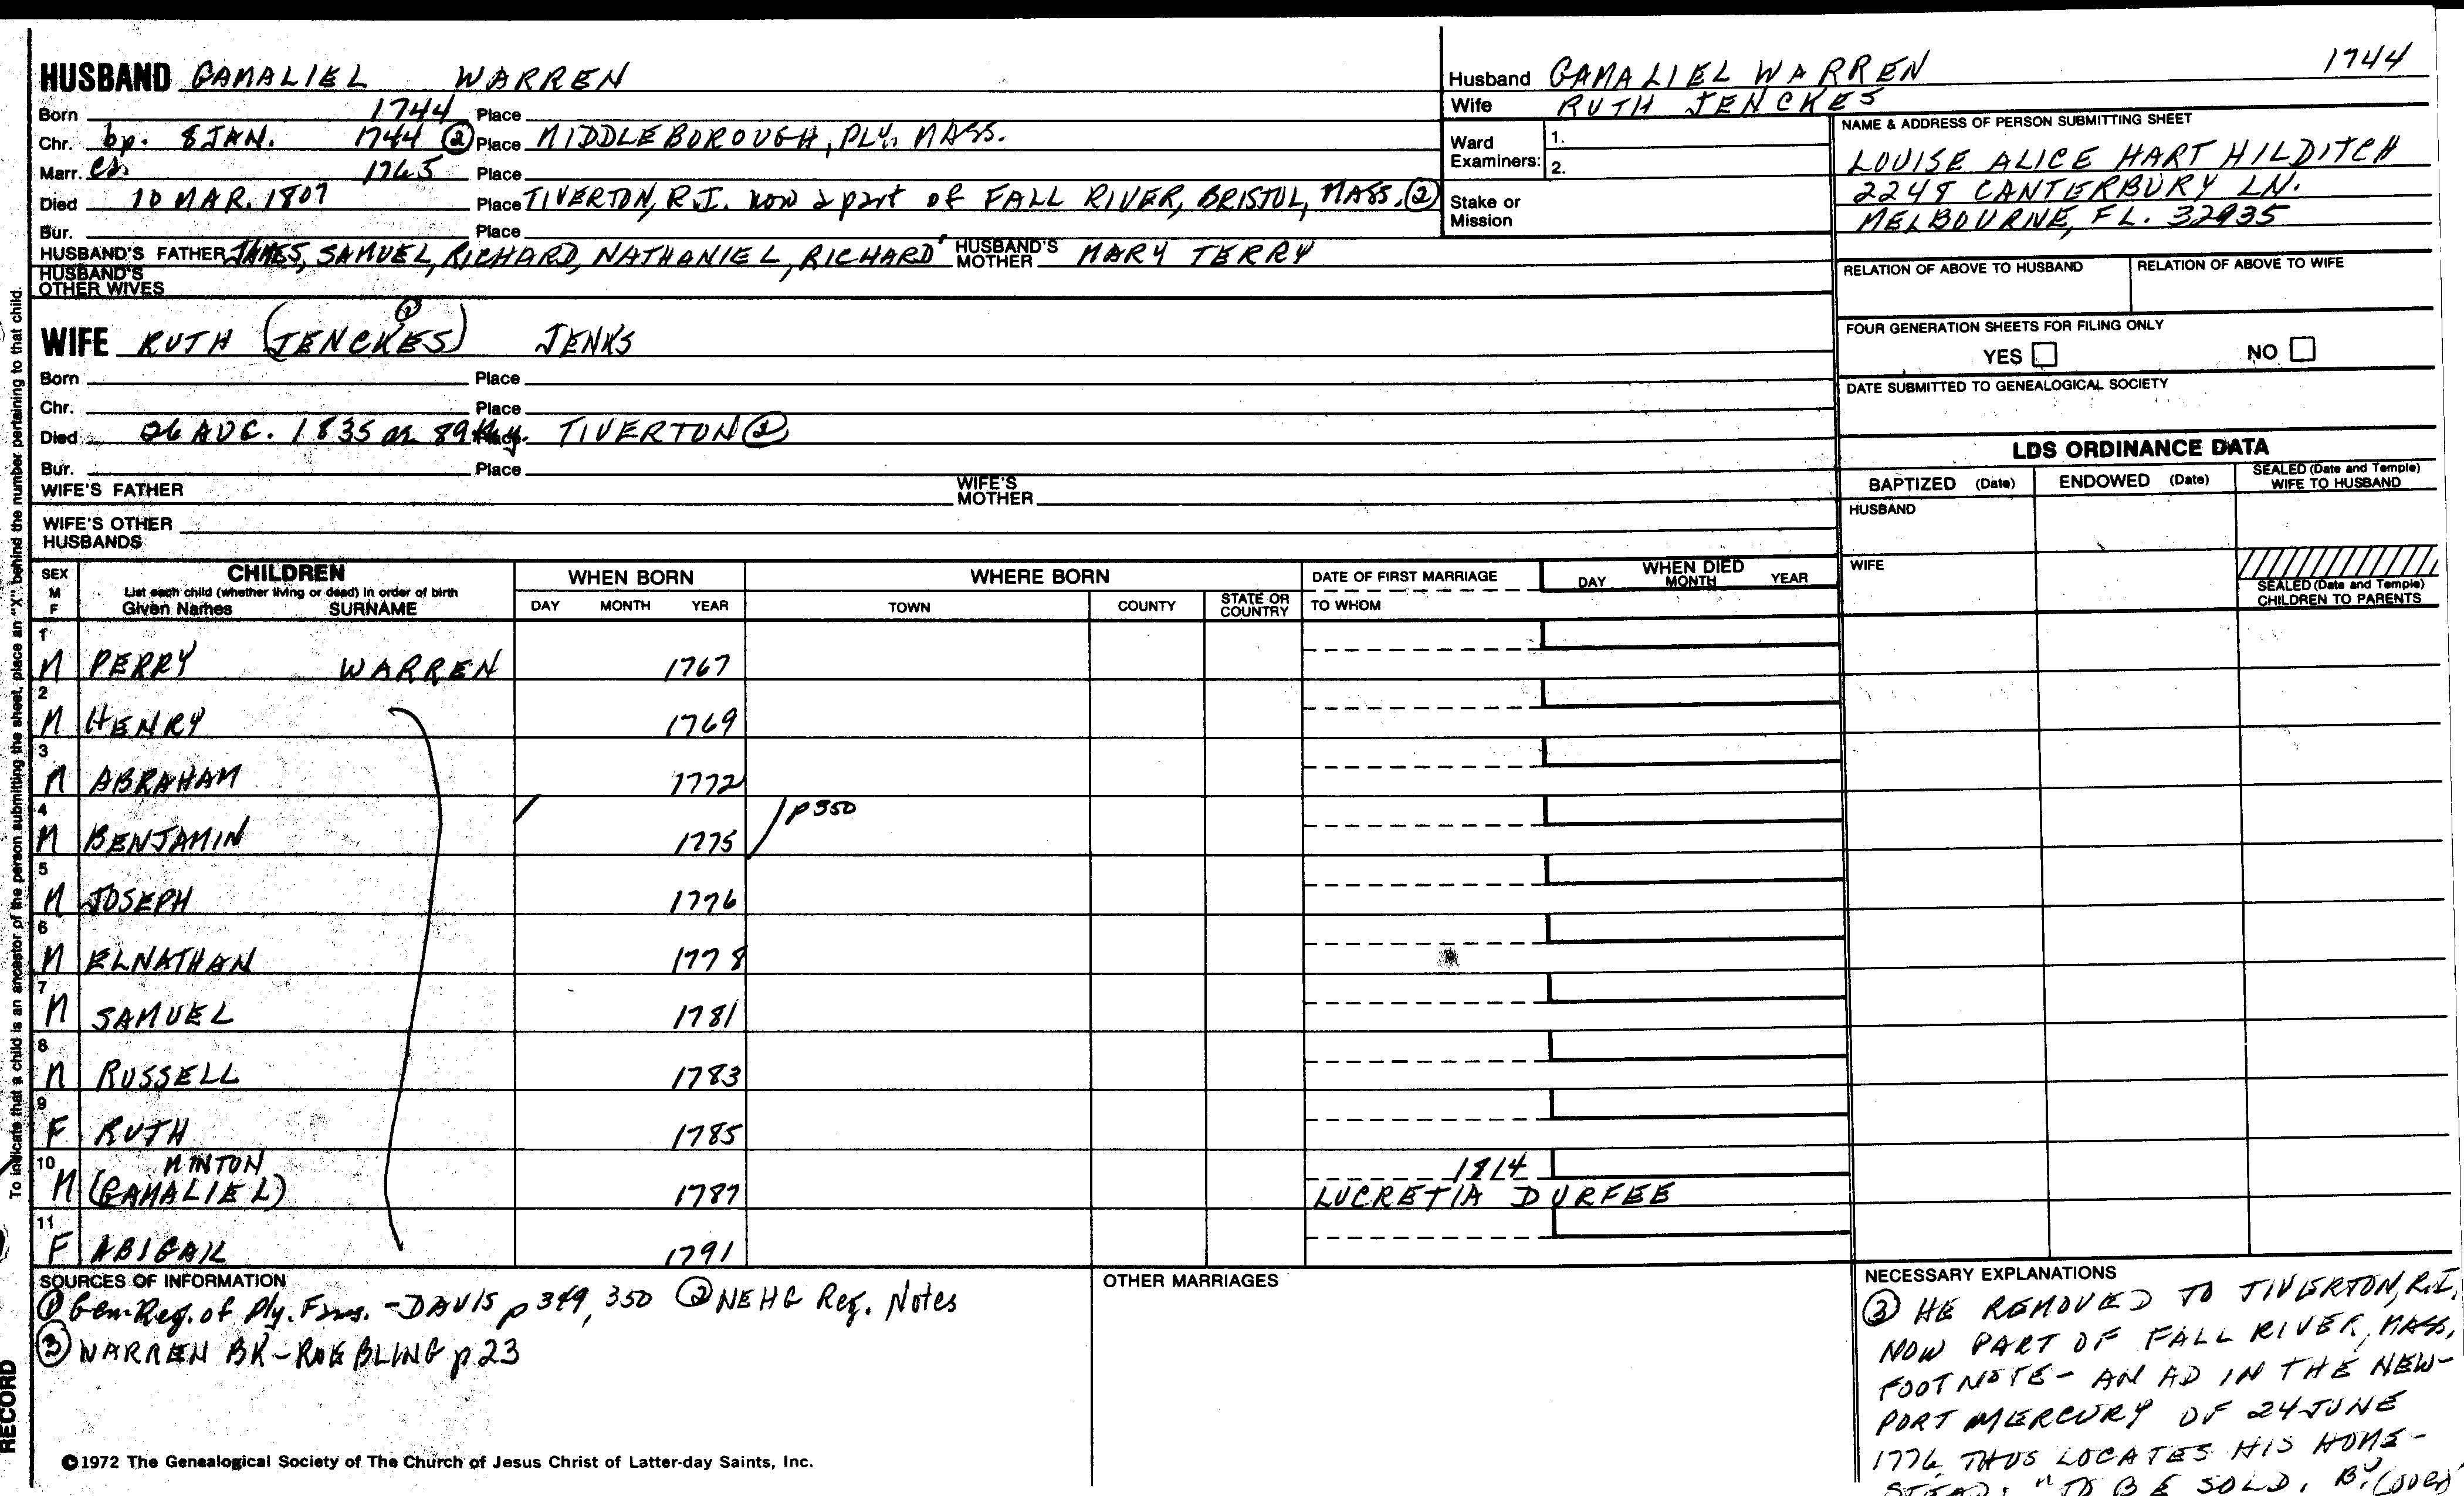 HUSBAND GAMALIEL WARREN
Born 1744 Place
Chr. bp. 8 JAN. 1744 ② Place MIDDLEBOROUGH, PLY, MASS.
Marr. ca. 1765 Place
Died 10 MAR. 1807 Place TIVERTON, R.I. now a part of FALL RIVER, BRISTOL, MASS. ②
Bur. Place
HUSBAND'S FATHER JAMES, SAMUEL, RICHARD, NATHANIEL, RICHARD HUSBAND'S MOTHER MARY TERRY
HUSBAND'S OTHER WIVES
Husband GAMALIEL WARREN 1744
Wife RUTH JENCKES
Ward Examiners: 1.
2.
Stake or Mission
NAME & ADDRESS OF PERSON SUBMITTING SHEET
LOUISE ALICE HART HILDITCH
2248 CANTERBURY LN.
MELBOURNE, FL. 32935
RELATION OF ABOVE TO HUSBAND RELATION OF ABOVE TO WIFE
FOUR GENERATION SHEETS FOR FILING ONLY
YES NO
DATE SUBMITTED TO GENEALOGICAL SOCIETY
WIFE RUTH (JENCKES) JENKS
Born Place
Chr. Place
Died 26 AUG. 1835 89th y. TIVERTON ②
Bur. Place
WIFE'S FATHER WIFE'S MOTHER
WIFE'S OTHER HUSBANDS
LDS ORDINANCE DATA
BAPTIZED (Date) ENDOWED (Date) SEALED (Date and Temple) WIFE TO HUSBAND
HUSBAND
WIFE
SEALED (Date and Temple) CHILDREN TO PARENTS
SEX M F CHILDREN List each child (whether living or dead) in order of birth Given Names SURNAME
WHEN BORN DAY MONTH YEAR
WHERE BORN TOWN COUNTY STATE OR COUNTRY
DATE OF FIRST MARRIAGE TO WHOM
WHEN DIED DAY MONTH YEAR
1 M PERRY WARREN 1767
2 M HENRY 1769
3 M ABRAHAM 1772
4 M BENJAMIN 1775 p 350
5 M JOSEPH 1776
6 M ELNATHAN 1778
7 M SAMUEL 1781
8 M RUSSELL 1783
9 F RUTH 1785
10 M MINTON (GAMALIEL) 1787 1814 LUCRETIA DURFEE
11 F ABIGAIL 1791
SOURCES OF INFORMATION
① Gen. Reg. of Ply. Fams. - DAVIS p 349, 350 ② NEHG Reg. Notes
③ WARREN BK - ROEBLING p 23
OTHER MARRIAGES
NECESSARY EXPLANATIONS
③ HE REMOVED TO TIVERTON, R.I,
NOW PART OF FALL RIVER, MASS,
FOOTNOTE - AN AD IN THE NEW-
PORT MERCURY OF 24 JUNE
1776 THUS LOCATES HIS HOME-
STEAD: "TO BE SOLD, BY (over)
©1972 The Genealogical Society of The Church of Jesus Christ of Latter-day Saints, Inc.
To indicate that a child is an ancestor of the person submitting the sheet, place an "X" behind the number pertaining to that child.
RECORD